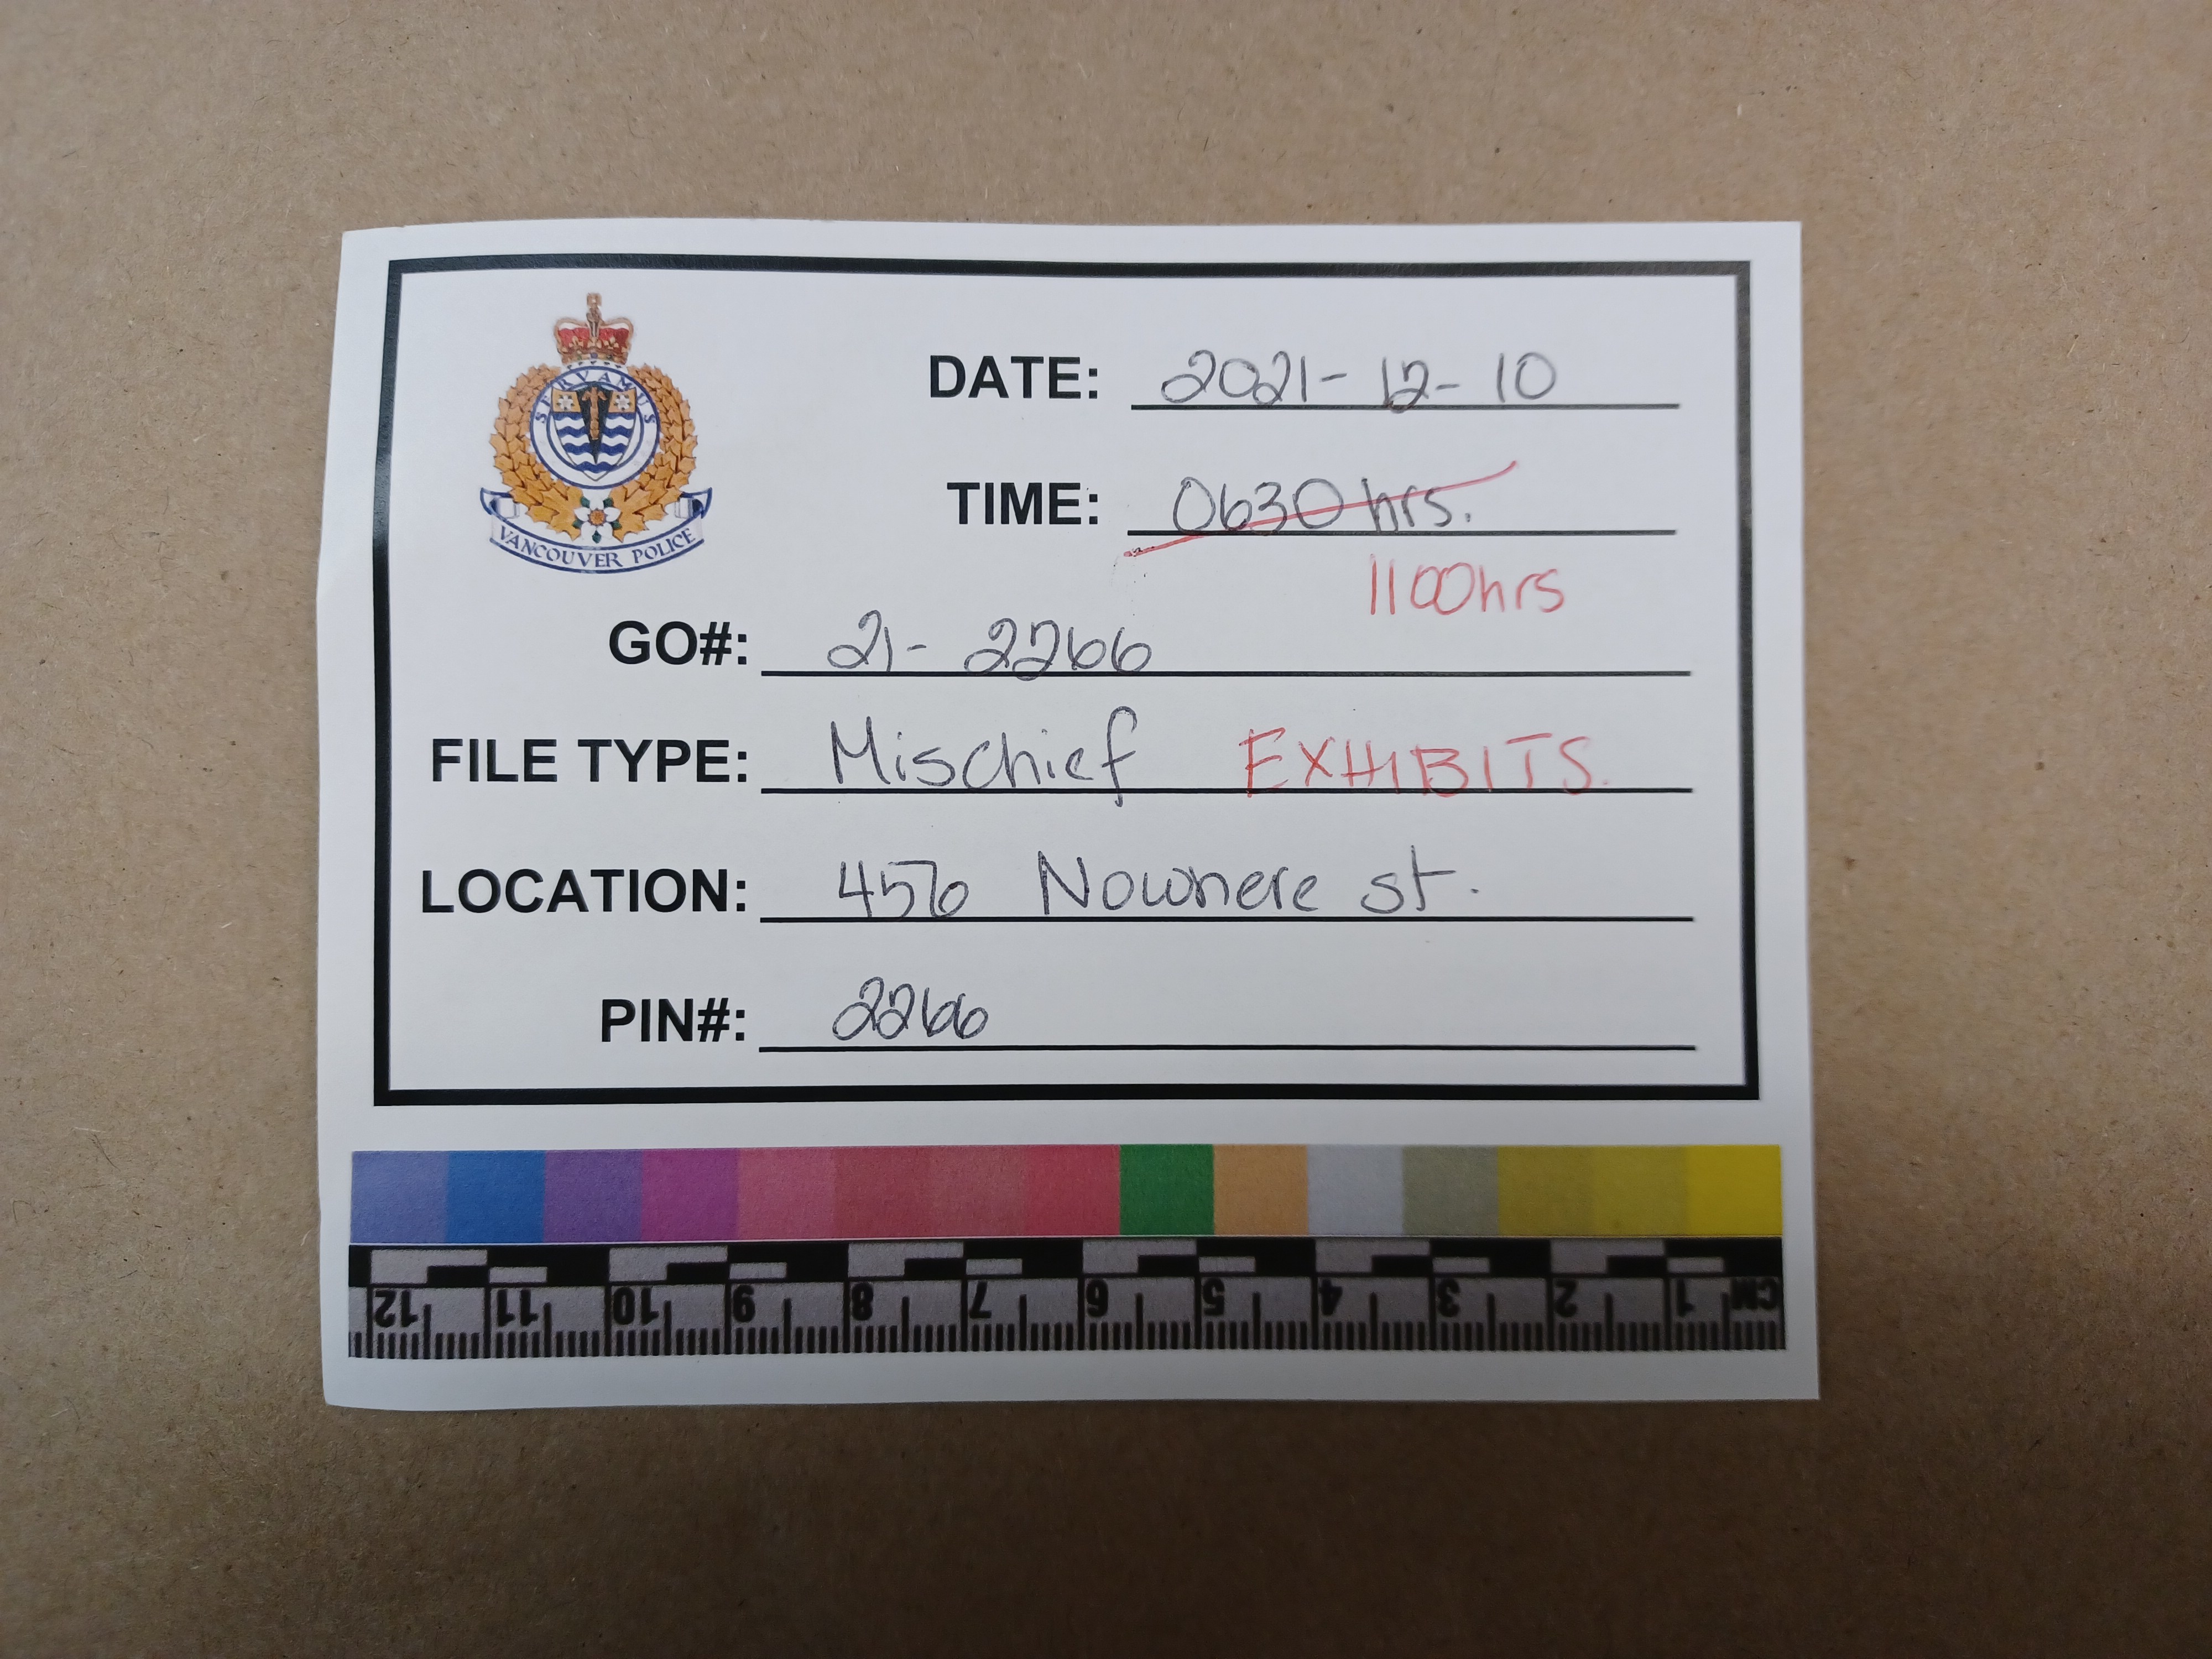 SERVAMUS
VANCOUVER POLICE
DATE: 2021-12-10
TIME: 0630 hrs.
1100hrs
GO#: 21-2266
FILE TYPE: Mischief EXHIBITS.
LOCATION: 456 Nowhere st.
PIN#: 2266
12 11 10 9 8 7 6 5 4 3 2 1 CM